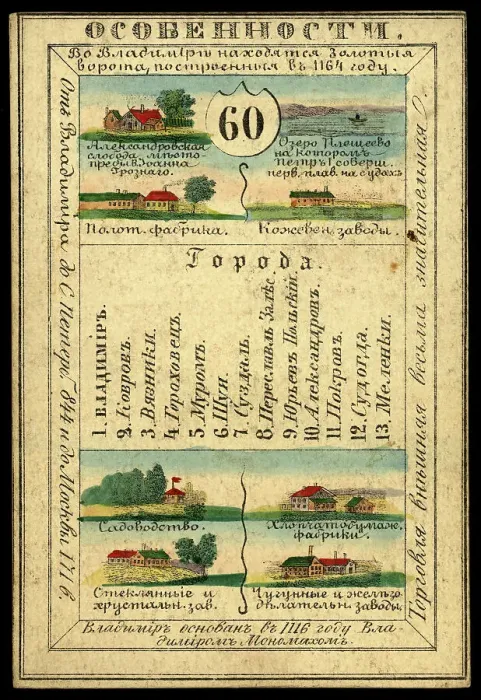 ОСОБЕННОСТИ.
Во Владимірѣ находятся Золотыя
ворота, построенныя въ 1164 году.
60
Александровская
слобода, мѣсто
пребыв. Іоанна
Грознаго.
Озеро Плещеево
на которомъ
Петръ I соверш.
перв. плав. на судахъ
Полот. фабрика.
Кожевен. заводы.
Города.
1. ВЛАДИМІРЪ.
2. Ковровъ.
3. Вязники.
4. Гороховецъ.
5. Муромъ.
6. Шуя.
7. Суздаль.
8. Переславль Залѣс.
9. Юрьевъ Польскій.
10. Александровъ.
11. Покровъ.
12. Судогда.
13. Меленки.
Садоводство.
Хлопчатобумаж.
фабрики.
Стеклянные и
хрустальн. зав.
Чугунные и желѣзо-
дѣлательн. заводы.
Владиміръ основанъ въ 1116 году Вла-
диміромъ Мономахомъ.
Отъ Владиміра до С. Петерб. 844 и до Москвы 171 в.
Торговля внѣшняя весьма значительная.